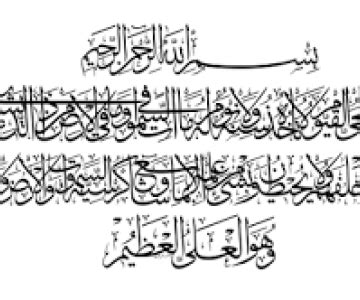 بسم الله الرحمن الرحيم
الحي القيوم لا تأخذه سنة ولا نوم له ما في السموات وما في الأرض من ذا الذي
خلفهم ولا يحيطون بشيء من علمه إلا بما شاء وسع كرسيه السموات والأرض و
وهو العلي العظيم